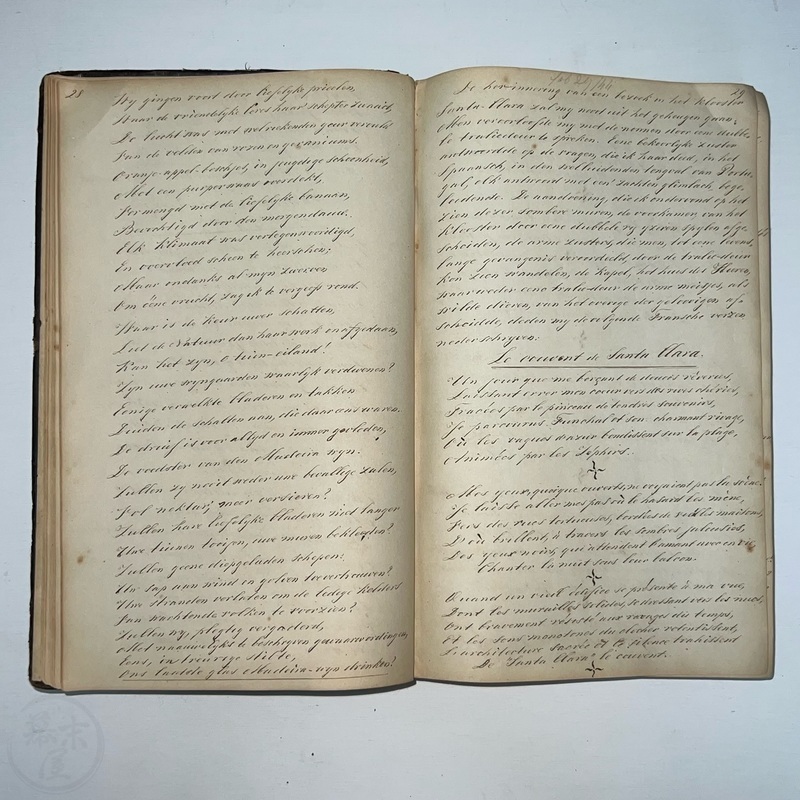 28
Wy gingen voort door liefelyke prieelen,
Waar de vriendelyke Ceres haar schepter zwaait,
De lucht was met welriekenden geur vervuld
Van de velden van rozen en geraniums.
Oranje-appel-boschjes, in jeugdige schoonheid,
Met een purper waas overdekt,
Vermengd met de liefelyke banaan,
Bevochtigd door den morgendauw.
Elk klimaat was vertegenwoordigd,
En overvloed scheen te heerschen;
Maar ondanks al myn zoeken
Om ééne vrucht, zag ik te vergeefs rond.
Waar is de keur uwer schatten,
Liet de Natuur dan haar werk onafgedaan,
Kan het zyn, o tuin-eiland!
Zyn uwe wyngaarden waarlyk verdwenen?
Eenige verwelkte bladeren en takken
Duiden de schatten aan, die daar eens waren.
De druif is voor altyd en immer gevloden,
De voedster van den Madeira wyn.
Zullen zy nooit weder uwe bevallige zuilen,
Vol nektar, meer versieren?
Zullen hare liefelyke bladeren niet langer
Uwe tuinen tooijen, uwe muren bekleeden?
Zullen geene diepgeladen schepen
Uw sap aan wind en golven toevertrouwen?
Uwe stranden verlaten om de ledige kelders
Van wachtende volken te voorzien?
Zullen wy, plegtig vergaderd,
Met naauwelyks te bedwingen gewaarwordingen,
Eens, in treurige stilte,
Ons laatste glas Madeira-wyn drinken?
29
De herinnering van een bezoek in het klooster
Santa-Clara zal my nooit uit het geheugen gaan.
Men veroorloofde my met de nonnen door een dubbele
tralievenster te spreken. Eene bekoorlyke zuster
antwoordde op de vragen, die ik haar deed, in het
Spaansch, in den welluidenden tongval van Portu-
gal; elk antwoord met een' zachten glimlach, bege-
leidende. De aandoening, die ik ondervond op het
zien dezer sombere muren, de voorkamer, van het
klooster door eene dubbele ry yzeren spylen afge-
scheiden, de arme zusters, die men, tot eene levens-
lange gevangenis veroordeeld, door de tralie-deur
kon zien wandelen, de kapel, het huis des Heeren,
waar weder eene tralie-deur de arme meisjes, als
wilde dieren, van het overige der geloovigen af-
scheidde, deden my de volgende Fransche verzen
neder schryven:
Le couvent de Santa Clara.
Un jour que me berçant de douces rêveries,
Laissant errer mon coeur vers des rives chéries,
Tracées par le pinceau de tendres souvenirs,
Je parcourus Funchal et son charmant rivage,
Où les vagues d'azur bondissent sur la plage,
Animées par les Zephirs.
Mes yeux, quoique ouverts, ne voyaient pas la scène.
Je laisse aller mes pas où le hasard les mène,
Vers des rues tortueuses, bordées de vieilles maisons,
D'où brillent, à travers les sombres jalousies,
Des yeux noirs, qui attendent l'amant avec envie,
Chanter la nuit sous leur balcon.
Quand un vieil édifice se présente à ma vue,
Dont les murailles solides, se dressant vers les nues,
Ont bravement résisté aux ravages du temps,
Et les sons monotones du clocher retentissent,
L'architecture sacrée et le silence trahissent
De "Santa Clara" le couvent.